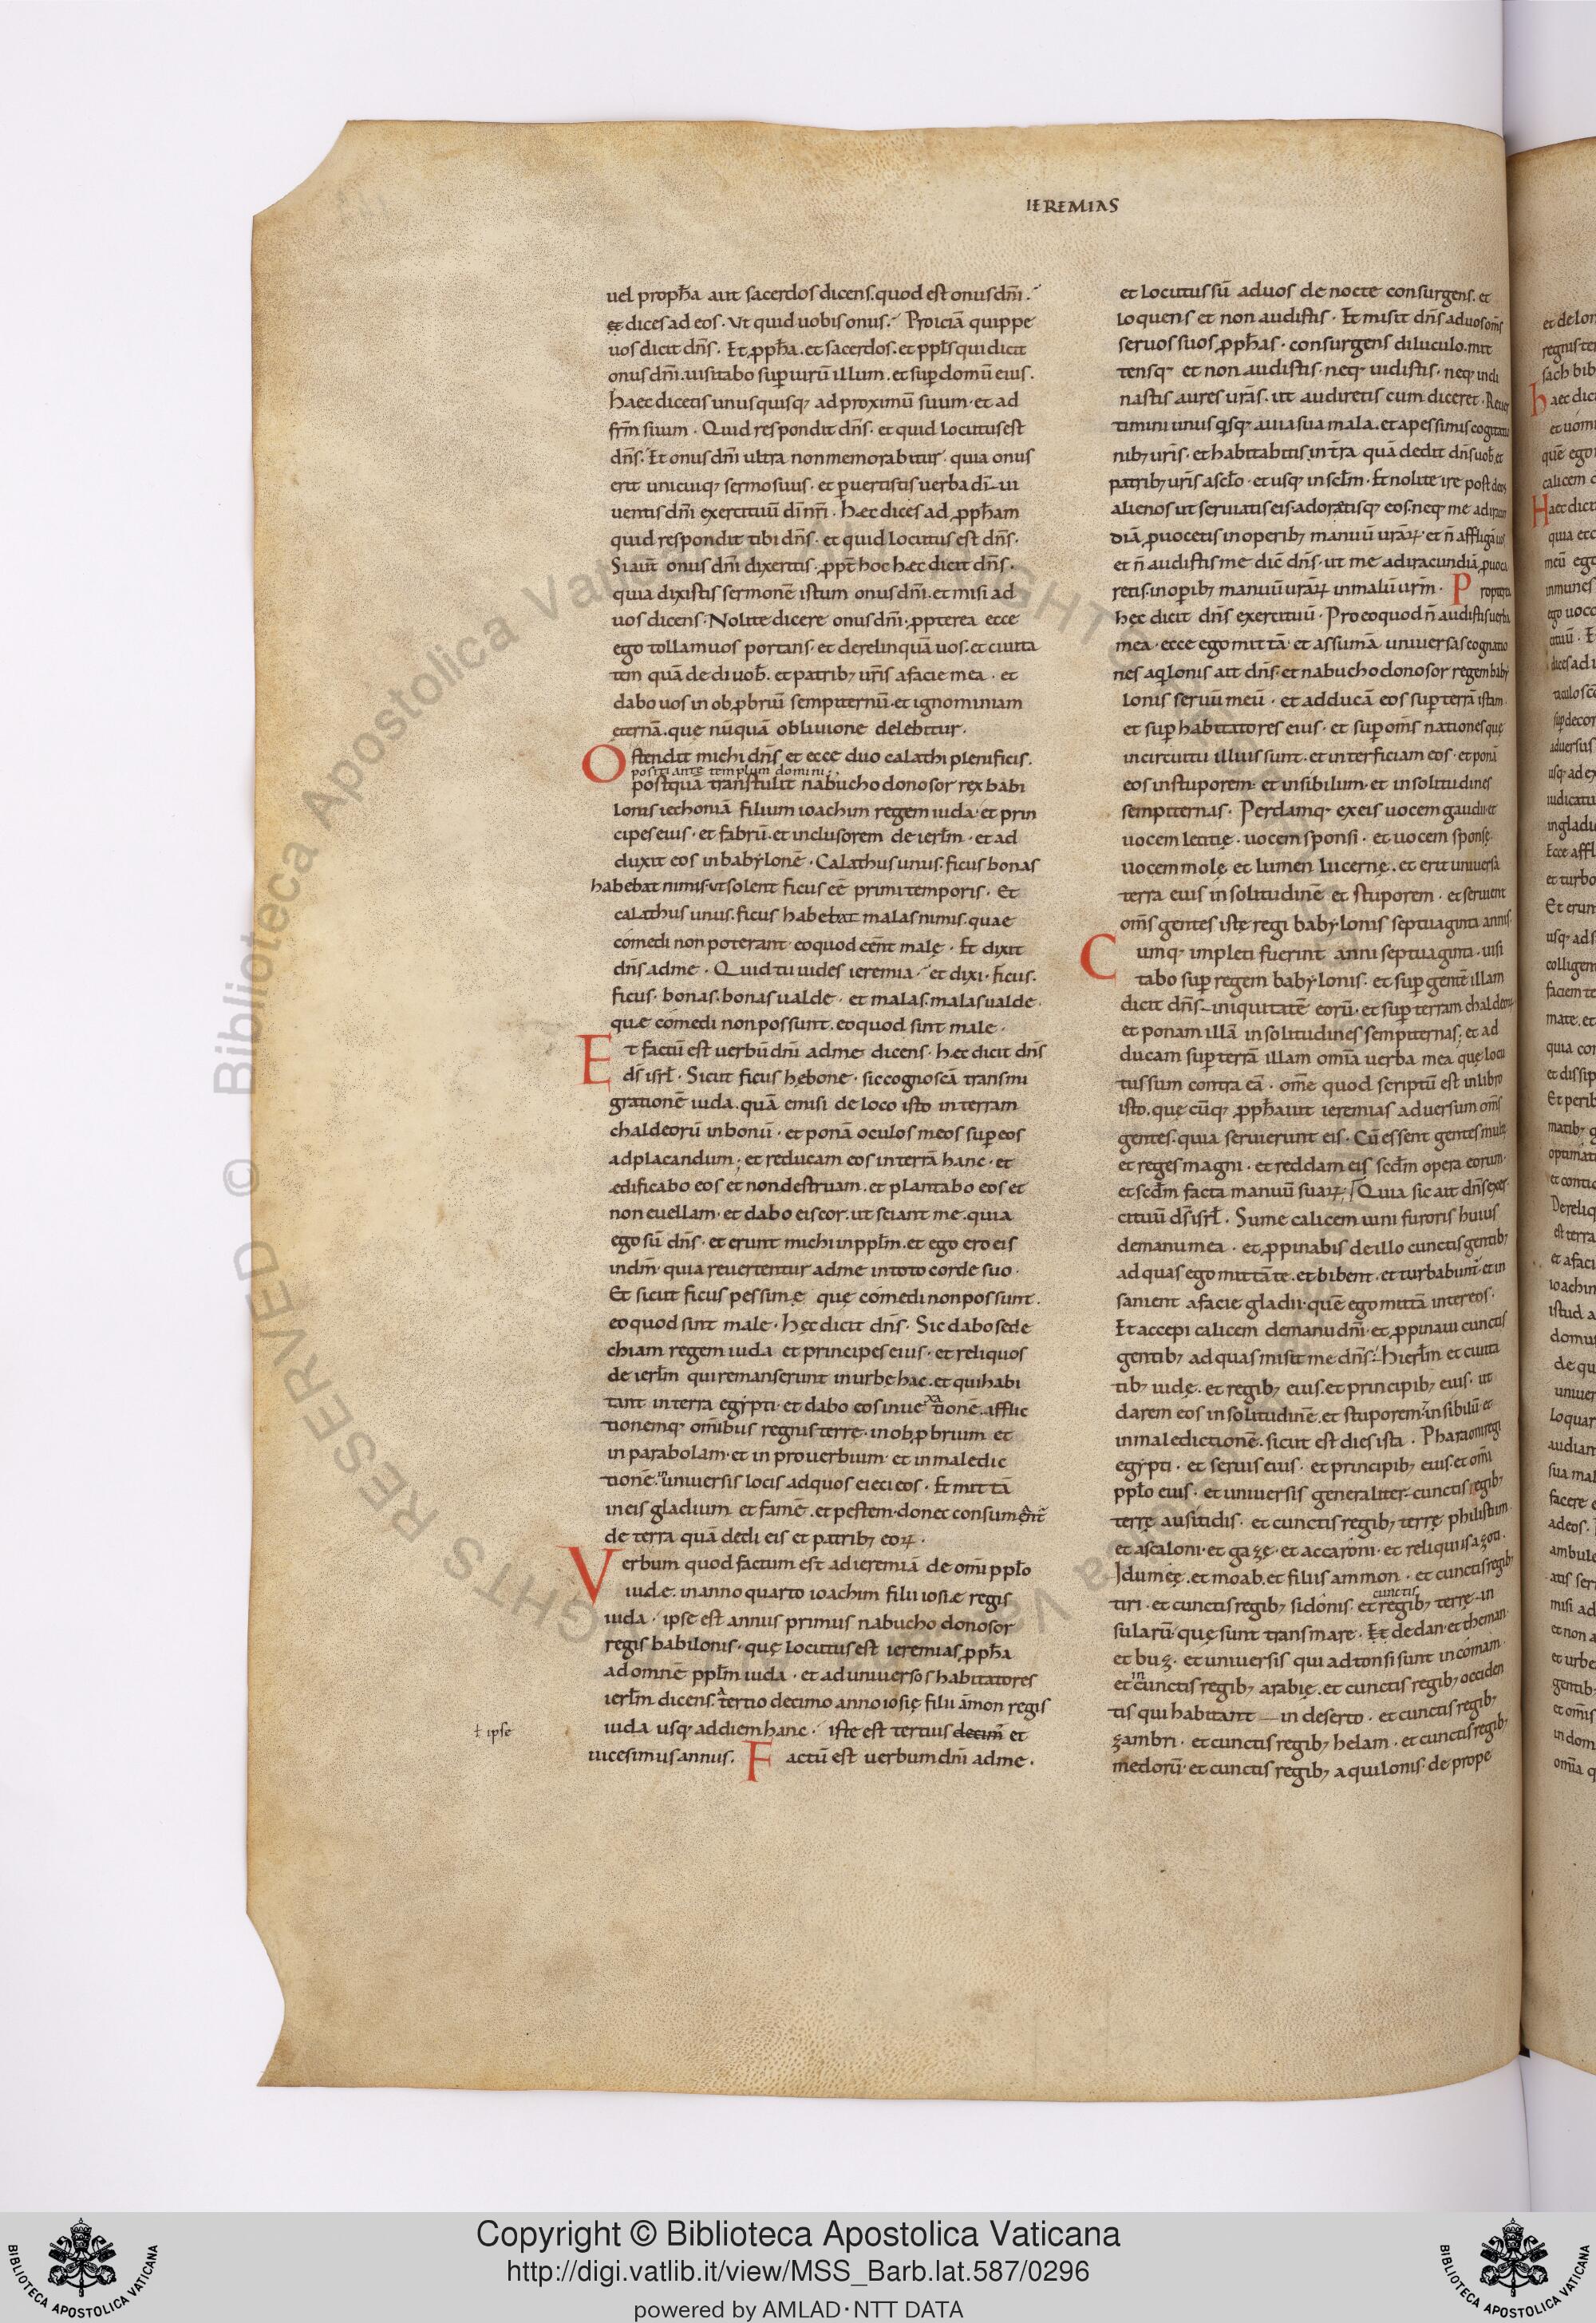 IEREMIAS
uel proph̅a aut sacerdos dicens. quod est onus dn̅i.
et dices ad eos. Vt quid uobis onus. Proiciā quippe
uos dicit dn̅s. Et ꝓph̅a. et sacerdos. et ppl̅s qui dicit
onus dn̅i. uisitabo sup̱ uirū illum. et sup̱ domū eius.
haec dicetis unusquisq; ad proximū suum. et ad
fr̅m suum. Quid respondit dn̅s. et quid locutus est
dn̅s. Et onus dn̅i ultra non memorabitur. quia onus
erit unicuiq; sermo suus. et p̱uertistis uerba dī ui
uentis dn̅i exercituū dī nr̅i. Hec dices ad ꝓph̅am
quid respondit tibi dn̅s. et quid locutus est dn̅s.
Si aut̅ onus dn̅i dixeritis. ꝓpt̅ hoc hec dicit dn̅s.
quia dixistis sermonē istum onus dn̅i. et misi ad
uos dicens. Nolite dicere onus dn̅i. ꝓpterea ecce
ego tollam uos portans. et derelinquā uos. et ciuita
tem quā dedi uob̅. et patrib; ur̅is a facie mea. et
dabo uos in obꝓbriū sempiternū. et ignominiam
ęternā. quę nūquā obliuione delebitur.
Ostendit michi dn̅s et ecce duo calathi pleni ficis.
positi ante templum domini.
postquā transtulit nabuchodonosor rex babi
lonis iechoniā filium ioachim regem iuda. et prin
cipes eius. et fabrū. et inclusorem de ierl̅m. et ad
duxit eos in babylonē. Calathus unus. ficus bonas
habebat nimis. ut solent ficus eē primi temporis. Et
calathus unus. ficus habebat malas nimis. quae
comedi non poterant eo quod eēnt malę. Et dixit
dn̅s ad me. Quid tu uides ieremia. et dixi. ficus.
ficus. bonas. bonas ualde. et malas. malas ualde.
que comedi non possunt. eo quod sint male.
Et factū est uerbū dn̅i ad me dicens. hec dicit dn̅s
ds̅ isrl̅. Sicut ficus hę bone. sic cognoscā transmi
grationē iuda. quā emisi de loco isto in terram
chaldeorū in bonū. et ponā oculos meos sup̱ eos
ad placandum. et reducam eos in terrā hanc. et
ędificabo eos et non destruam. et plantabo eos et
non euellam. et dabo eis cor. ut sciant me. quia
ego sū dn̅s. et erunt michi in ppl̅m. et ego ero eis
in dm̅. quia reuertentur ad me in toto corde suo.
Et sicut ficus pessimę quę comedi non possunt.
eo quod sint male. Hęc dicit dn̅s. Sic dabo sede
chiam regem iuda et principes eius. et reliquos
de ierl̅m qui remanserunt in urbe hac. et qui habi
tant in terra egypti. et dabo eos in uexationē. afflic
tionemq; om̅ibus regnis terre. in obꝓbrium et
in parabolam. et in prouerbium. et in maledic
tionē. in uniuersis locis ad quos eieci eos. Et mittā
in eis gladium et famē. et pestem. donec consument̅
de terra quā dedi eis et patrib; eoꝝ.
Verbum quod factum est ad ieremiā de om̅i ppl̅o
iude. in anno quarto ioachim filii iosie regis
iuda. ipse est annus primus nabuchodonosor
regis babilonis. quę locutus est ieremias ꝓph̅a
ad omnē ppl̅m iuda. et ad uniuersos habitatores
ierl̅m dicens. A tertio decimo anno iosię filii āmon regis
ł ipse
iuda usq; ad diem hanc. iste est tertius decim̅ et
uicesimus annus. Factū est uerbum dn̅i ad me.
et locutus sū ad uos de nocte consurgens. et
loquens et non audistis. Et misit dn̅s ad uos om̅s
seruos suos ꝓph̅as. consurgens diluculo. mit
tensq; et non audistis. neq; uidistis. neq; incli
nastis aures ur̅as. ut audiretis cum diceret. Reuer
timini unus q̇sq; a uia sua mala. et a pessimis cogitatio
nib; ur̅is. et habitabitis in tr̅a quā dedit dn̅s uob̅. et
patrib; ur̅is a scl̅o. et usq; in scl̅m. Et nolite ire post deos
alienos ut seruiatis eis. adoretisq; eos. neq; me ad iracun
diā ꝓuocetis in operib; manuū ur̅aꝝ. et n̅ affligā uos
et n̅ audistis me dic̅ dn̅s. ut me ad iracundiā ꝓuoca
retis. in op̱ib; manuū ur̅aꝝ in malū ur̅m. Propterea
hęc dicit dn̅s exercituū. Pro eo quod n̅ audistis uerba
mea. ecce ego mittā et assumā uniuersas cognatio
nes aq̇lonis ait dn̅s. et nabuchodonosor regem baby
lonis seruū meū. et adducā eos sup̱ terrā istam.
et sup̱ habitatores eius. et sup̱ om̅s nationes quę
in circuitu illius sunt. et interficiam eos. et ponā
eos in stuporem. et in sibilum. et in solitudines
sempiternas. Perdamq; ex eis uocem gaudii. et
uocem letitię. uocem sponsi. et uocem sponsę.
uocem molę et lumen lucernę. et erit uniuersa
terra eius in solitudinē et stuporem. et seruient
om̅s gentes istę regi babylonis septuaginta annis.
Cumq; impleti fuerint anni septuaginta. uisi
tabo sup̱ regem babylonis. et sup̱ gentē illam
dicit dn̅s iniquitatē eorū. et sup̱ terram chaldeorū
et ponam illā in solitudines sempiternas. et ad
ducam sup̱ terrā illam om̅ia uerba mea quę locu
tus sum contra eā. om̅e quod scriptū est in libro
isto. quęcūq; ꝓph̅auit ieremias aduersum om̅s
gentes. quia seruierunt eis. Cū essent gentes multę
et reges magni. et reddam eis scd̅m opera eorum.
et scd̅m facta manuū suaꝝ. Quia sic ait dn̅s exer
cituū ds̅ isrl̅. Sume calicem uini furoris huius
de manu mea. et ꝓpinabis de illo cunctis gentib;
ad quas ego mittā te. et bibent. et turbabunt̅. et in
sanient a facie gladii. quē ego mittā inter eos.
Et accepi calicem de manu dn̅i. et ꝓpinaui cunctis
gentib; ad quas misit me dn̅s. Hierl̅m et ciuita
tib; iudę. et regib; eius. et principib; eius. ut
darem eos in solitudinē. et stuporem. et in sibilū. et
in maledictionē. sicut est dies ista. Pharaoni regi
egypti. et seruis eius. et principib; eius. et om̅i
ppl̅o eius. et uniuersis generaliter cunctis regib;
terrę ausitidis. et cunctis regib; terrę philistiim.
et ascaloni. et gazę. et accaroni. et reliquiis azoti.
Idumeę. et moab. et filiis ammon. et cunctis regib;
tiri. et cunctis regib; sidonis. et cunctis regib; terrę in
sularū. quę sunt trans mare. Et dedan. et theman.
et buz. et uniuersis qui adtonsi sunt in comam.
et in cunctis regib; arabię. et cunctis regib; occiden
tis qui habitant in deserto. et cunctis regib;
zambri. et cunctis regib; helam. et cunctis regib;
medorū. et cunctis regib; aquilonis. de prope
Copyright © Biblioteca Apostolica Vaticana
http://digi.vatlib.it/view/MSS_Barb.lat.587/0296
powered by AMLAD·NTT DATA